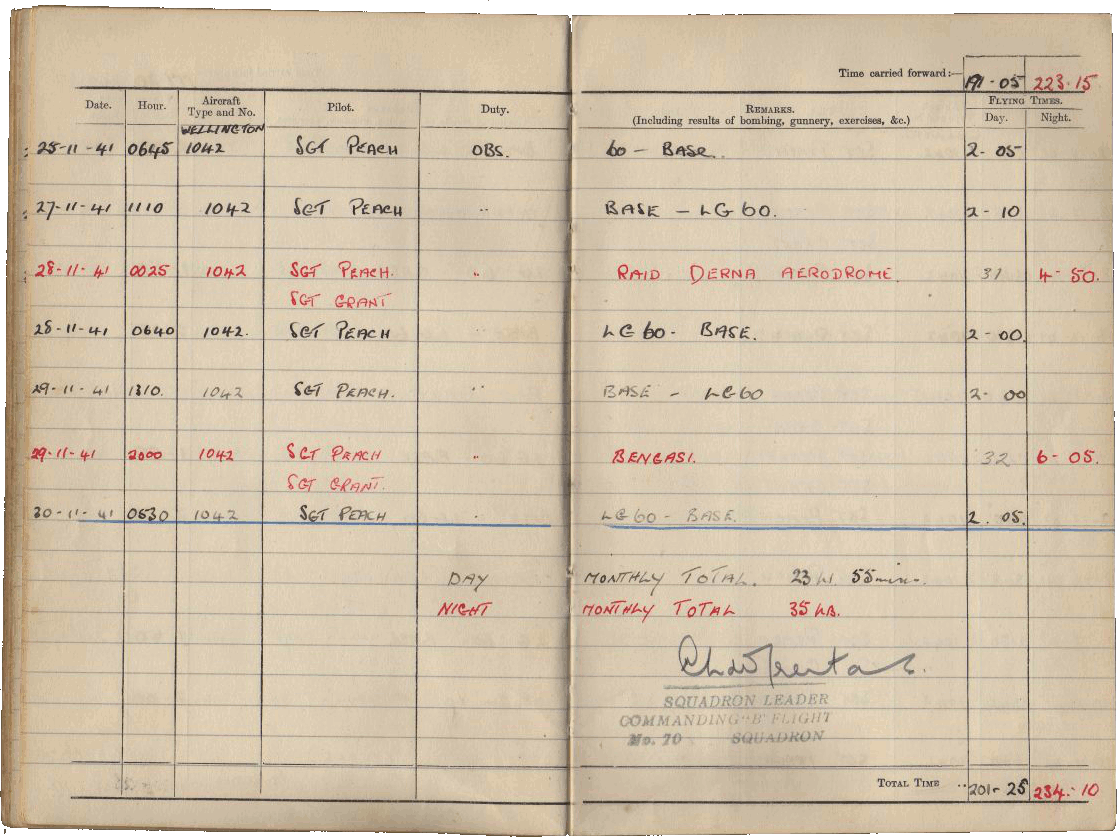 Time carried forward:— 191-05 223-15
Date. Hour. Aircraft Type and No. Pilot. Duty. REMARKS. (Including results of bombing, gunnery, exercises, &c.) FLYING TIMES. Day. Night.
WELLINGTON
25-11-41 0645 1042 SGT PEACH OBS. 60 - BASE. 2-05
27-11-41 1110 1042 SGT PEACH " BASE - LG 60. 2-10
28-11-41 0025 1042 SGT PEACH. " RAID DERNA AERODROME 31 4-50.
SGT GRANT
28-11-41 0640 1042. SGT PEACH " LG 60 - BASE. 2-00.
29-11-41 1310. 1042 SGT PEACH. " BASE - LG 60 2-00
29-11-41 2000 1042 SGT PEACH " BENGASI. 32 6-05.
SGT GRANT.
30-11-41 0630 1042 SGT PEACH " LG 60 - BASE. 2.05.
DAY MONTHLY TOTAL. 23 hr. 55 mins.
NIGHT MONTHLY TOTAL 35 hrs.
SQUADRON LEADER
COMMANDING "B" FLIGHT
No. 70 SQUADRON
TOTAL TIME .. 201-25 234-10